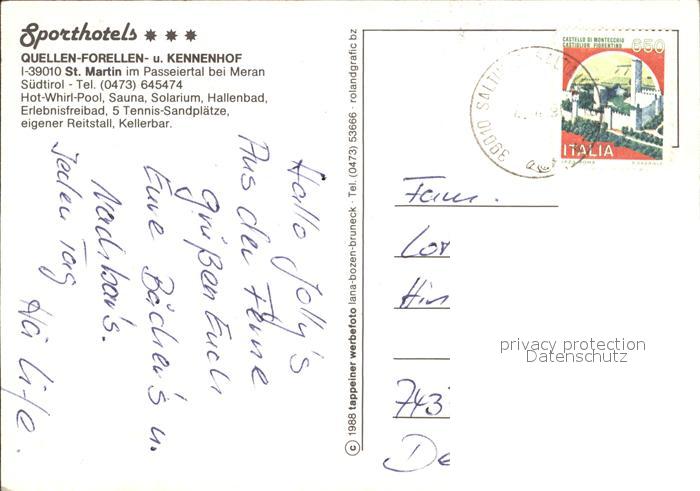 Sporthotels ✷ ✷ ✷
QUELLEN-FORELLEN- u. KENNENHOF
I-39010 St. Martin im Passeiertal bei Meran
Südtirol - Tel. (0473) 645474
Hot-Whirl-Pool, Sauna, Solarium, Hallenbad,
Erlebnisfreibad, 5 Tennis-Sandplätze,
eigener Reitstall, Kellerbar.
Hallo Jolly's
Aus der Ferne
grüßen Euch
Eure Bächer's u.
Nachbar's.
Jeden Tag
© 1988 tappeiner werbefoto lana-bozen-bruneck · Tel. (0473) 53666 · rolandgrafic bz
39010 SALTUSIO
CASTELLO DI MONTECCHIO
CASTIGLION FIORENTINO
650
ITALIA
Fam.
743
De
privacy protection
Datenschutz